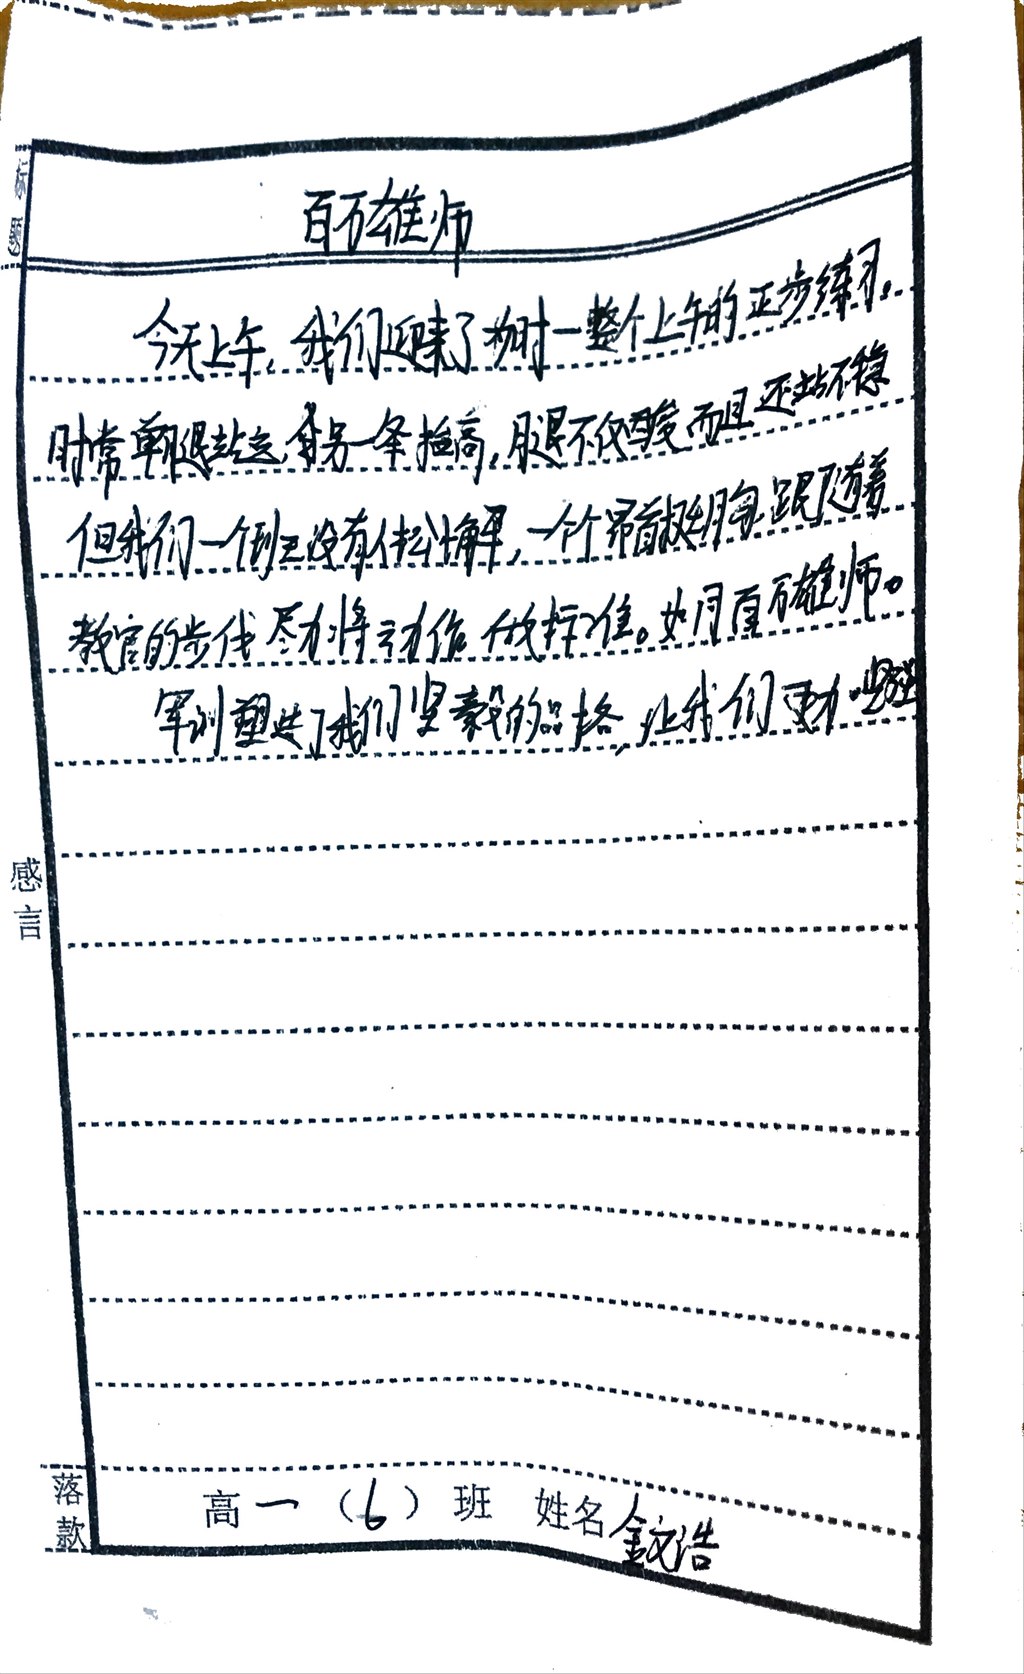 标题
百万雄师
今天上午,我们迎来了为时一整个上午的正步练习。
时常单腿站立,另一条抬高,腿不仅酸而且还站不稳
但我们一个到三没有松懈,一个个昂首挺胸每跟随着
教官的步伐尽力将动作做标准。如同百万雄师。
军训塑造了我们坚毅的品格,让我们更加坚强
感言
落款
高一(6)班 姓名金文浩